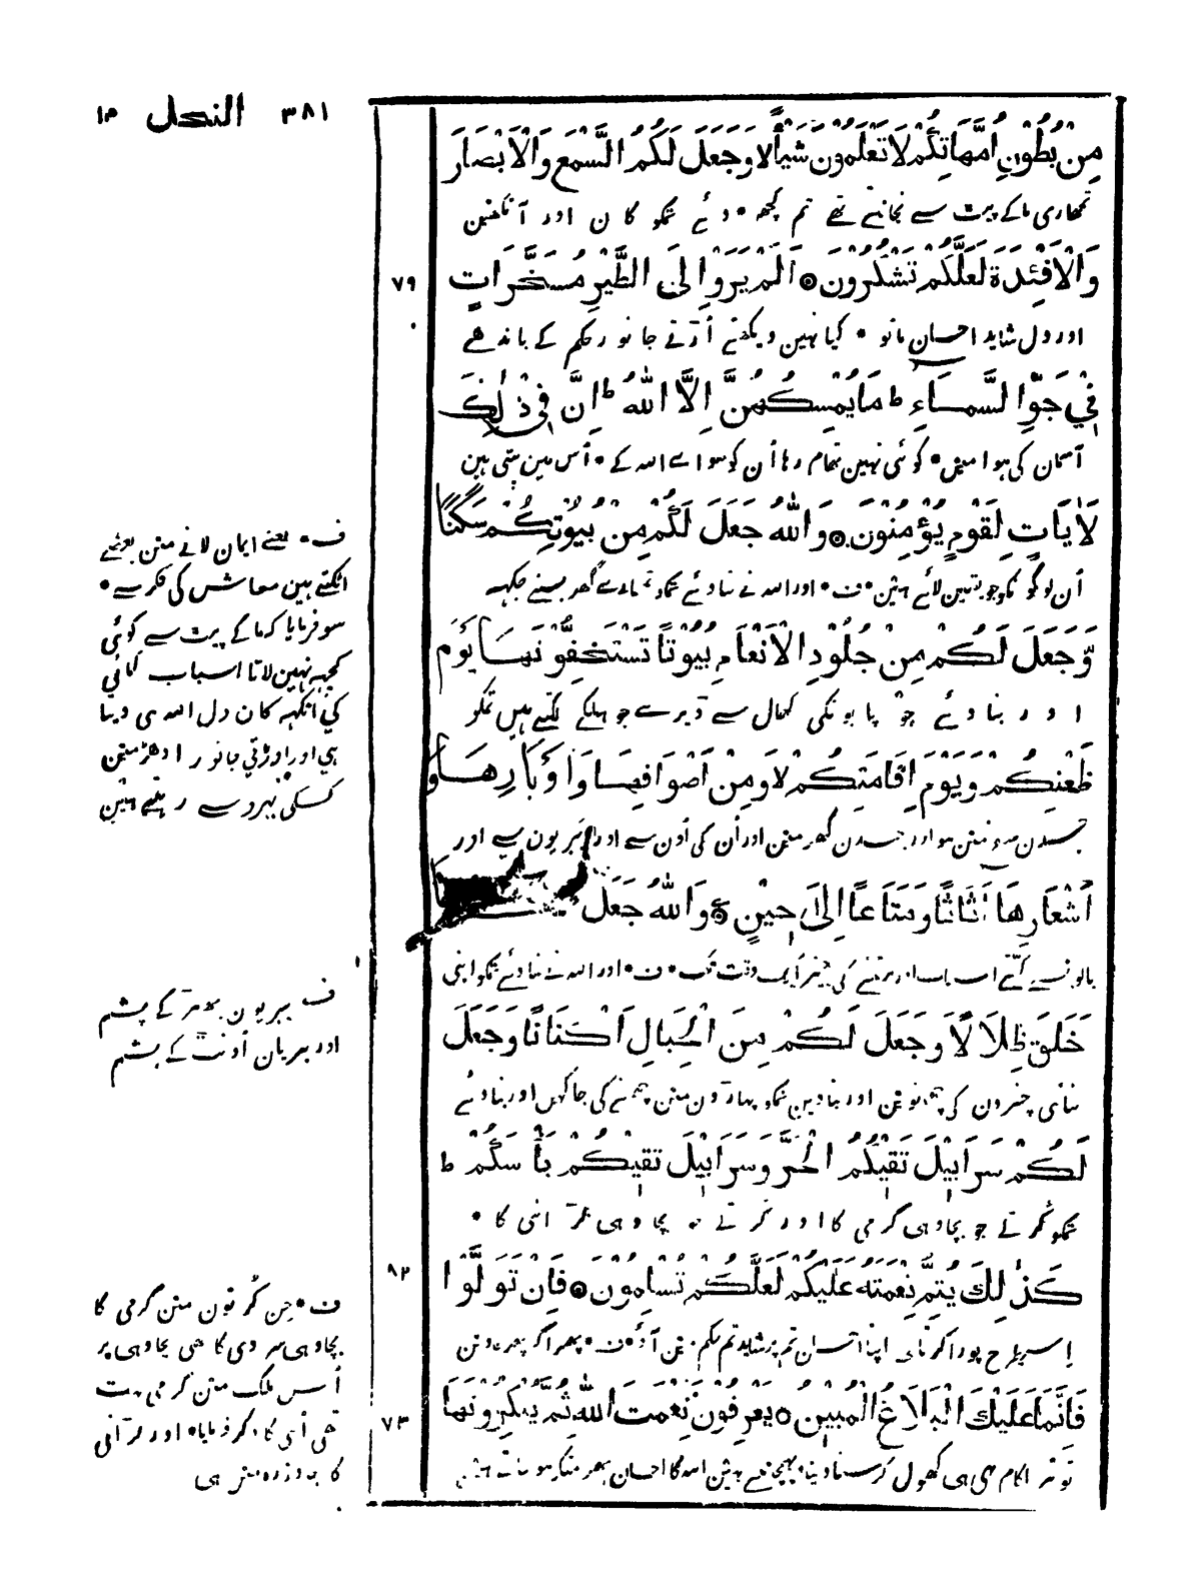 ٣٨١ النحل
مِنْ بُطُوْنِ اُمَّهَاتِكُمْ لَا تَعْلَمُوْنَ شَيْأً لا وَجَعَلَ لَكُمُ السَّمْعَ وَالْاَبْصَارَ
تمھاری ما کے پیٹ سے نجانتے تھے تم کچھ • دئے تمکو کان اور آنکھین
وَالْاَفْئِدَةَ لَعَلَّكُمْ تَشْكُرُوْنَ ۝ اَلَمْ يَرَوْا اِلَى الطَّيْرِ مُسَخَّرَاتٍ
٧٩
اور دل شاید احسان مانو • کیا نہین دیکھتے اُڑتے جانور حکم کے باندھے
فِيْ جَوِّ السَّمَاءِ ط مَا يُمْسِكُهُنَّ اِلَّا اللهُ ط اِنَّ فِيْ ذٰلِكَ
آسمان کی ہوا مین • کوئی نہین تھام رہا اُن کو سوا اے اللہ کے • اُس مین پتی ہین
لَاٰيَاتٍ لِقَوْمٍ يُؤْمِنُوْنَ ۝ وَاللهُ جَعَلَ لَكُمْ مِنْ بُيُوْتِكُمْ سَكَنًا
اُن لوگو نکو جو یقین لائے ہین • ف • اور اللہ نے بنا دئے تمکو تمہارے گھر بسنے جگہہ
وَّجَعَلَ لَكُمْ مِنْ جُلُوْدِ الْاَنْعَامِ بُيُوْتًا تَسْتَخِفُّوْنَهَا يَوْمَ
اور بنا دئے چوپایونکی کھال سے ڈیرے جو ہلکے لگتے ہیں تمکو
ظَعْنِكُمْ وَيَوْمَ اِقَامَتِكُمْ لا وَمِنْ اَصْوَافِهَا وَاَوْبَارِهَا وَ
جسدن سفر مین ہو اور جسدن گھر مین اور اُن کی اُون سے اور ببریون سے اور
اَشْعَارِهَا اَثَاثًا وَمَتَاعًا اِلٰى حِيْنٍ ۝ وَاللهُ جَعَلَ
بالونسے کتے اسباب اور برتنے کی چیز ایک وقت تک • ف • اور اللہ نے بنا دئے تمکو اپنی
خَلَقَ ظِلَالًا وَجَعَلَ لَكُمْ مِنَ الْجِبَالِ اَكْنَانًا وَجَعَلَ
بنائی چیزون کی چھانوین اور بنا دین تمکو پہاڑون مین چھپنے کی جاگہیں اور بنا دئے
لَكُمْ سَرَابِيْلَ تَقِيْكُمُ الْحَرَّ وَسَرَابِيْلَ تَقِيْكُمْ بَأْسَكُمْ ط
تمکو کُرتے جو بچاو ہی گرمی کا اور کُرتے جو بچاو ہی لڑائی کا •
كَذٰلِكَ يُتِمُّ نِعْمَتَهُ عَلَيْكُمْ لَعَلَّكُمْ تُسْلِمُوْنَ ۝ فَاِنْ تَوَلَّوْا
٨٢
اِسیطرح پورا کرتا ہی اپنا احسان تم پر شاید تم حکم مین آؤ • ف • پھر اگر پھر جاوین
فَاِنَّمَا عَلَيْكَ الْبَلَاغُ الْمُبِيْنُ ۝ يَعْرِفُوْنَ نِعْمَتَ اللهِ ثُمَّ يُنْكِرُوْنَهَا
٧٣
تو تیرا کام یہی ہی کھول کر سنا دینا • پہچانتے ہین اللہ کا احسان پھر منکر ہو جاتے ہین
ف • یعنے ایمان لانے مین بعضے
اٹکتے ہین معاش کی فکر سے •
سو فرمایا کہ ما کے پیٹ سے کوئی
کچھہ نہین لاتا اسباب کمائی
کی انکھہ کان دل اللہ ہی دیتا
ہی اور اوڑتی جانور ادھڑ مین
کسکی بہروسے رہتے ہین
ف ببریون بھیڑ کے پشم
اور ببریان اُونٹ کے پشم
ف • جن کُرتون مین گرمی کا
بچاو ہی سردی کا بھی بچاو ہی پر
اُس ملک مین گرمی بہت
تھی اُسی کا ذکر فرمایا • اور لڑائی
کا بچاو زرہ مین ہی